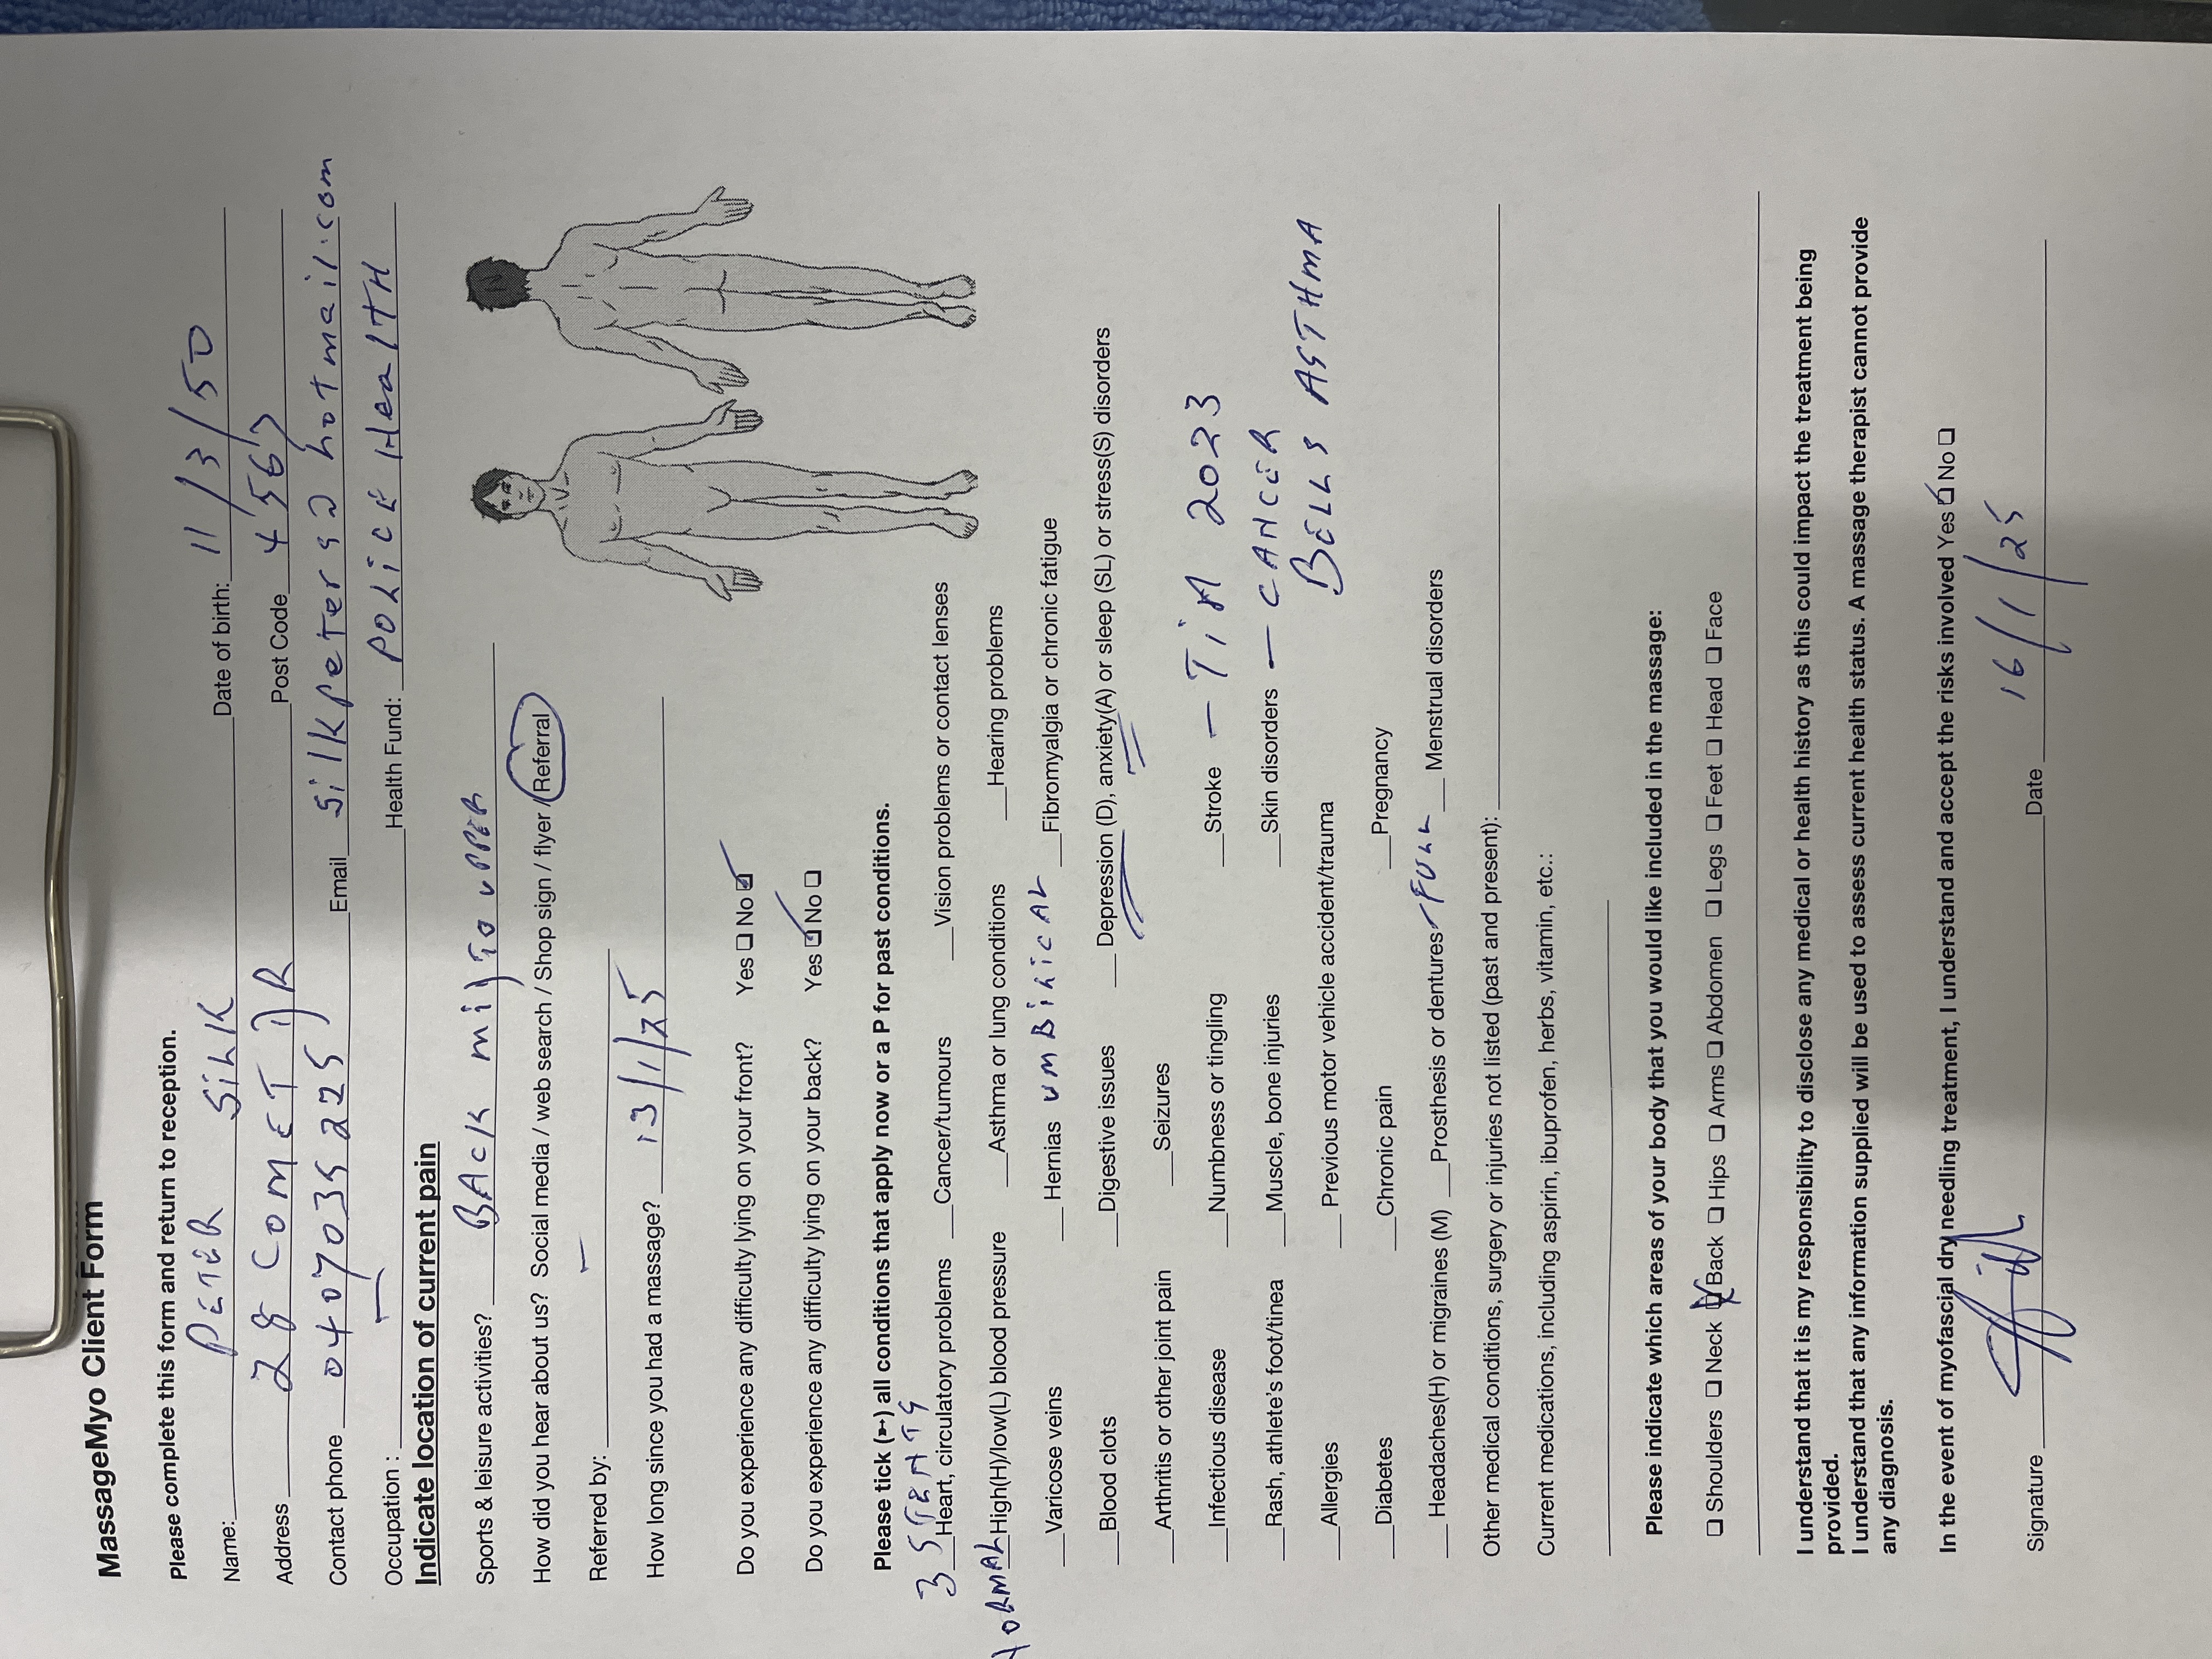 MassageMyo Client Form
Please complete this form and return to reception.
Name: PETER SILK Date of birth: 11/3/50
Address 28 COMET DR Post Code 4563
Contact phone 0407035225 Email silkpeter92hotmail.com
Occupation : — Health Fund: POLICE HealTH
Indicate location of current pain
Sports & leisure activities? BACK mid TO UPPER
How did you hear about us? Social media / web search / Shop sign / flyer / Referral
Referred by: —
How long since you had a massage? 13/1/25
Do you experience any difficulty lying on your front? Yes ☐ No ☑
Do you experience any difficulty lying on your back? Yes ☑ No ☐
Please tick (➳) all conditions that apply now or a P for past conditions.
3 STENTS
__Heart, circulatory problems __Cancer/tumours __Vision problems or contact lenses
NORMAL High(H)/low(L) blood pressure __Asthma or lung conditions __Hearing problems
__Varicose veins __Hernias UMBILICAL __Fibromyalgia or chronic fatigue
__Blood clots __Digestive issues __Depression (D), anxiety(A) or sleep (SL) or stress(S) disorders
__Arthritis or other joint pain __Seizures
__Infectious disease __Numbness or tingling __Stroke — TiA 2023
__Rash, athlete's foot/tinea __Muscle, bone injuries __Skin disorders — CANCER
__Allergies __Previous motor vehicle accident/trauma BELLS ASTHMA
__Diabetes __Chronic pain __Pregnancy
__Headaches(H) or migraines (M) __Prosthesis or dentures FULL __Menstrual disorders
Other medical conditions, surgery or injuries not listed (past and present):
Current medications, including aspirin, ibuprofen, herbs, vitamin, etc.:
Please indicate which areas of your body that you would like included in the massage:
☐ Shoulders ☐ Neck ☑ Back ☐ Hips ☐ Arms ☐ Abdomen ☐ Legs ☐ Feet ☐ Head ☐ Face
I understand that it is my responsibility to disclose any medical or health history as this could impact the treatment being
provided.
I understand that any information supplied will be used to assess current health status. A massage therapist cannot provide
any diagnosis.
In the event of myofascial dry needing treatment, I understand and accept the risks involved Yes ☑ No ☐
Signature Date 16/1/25